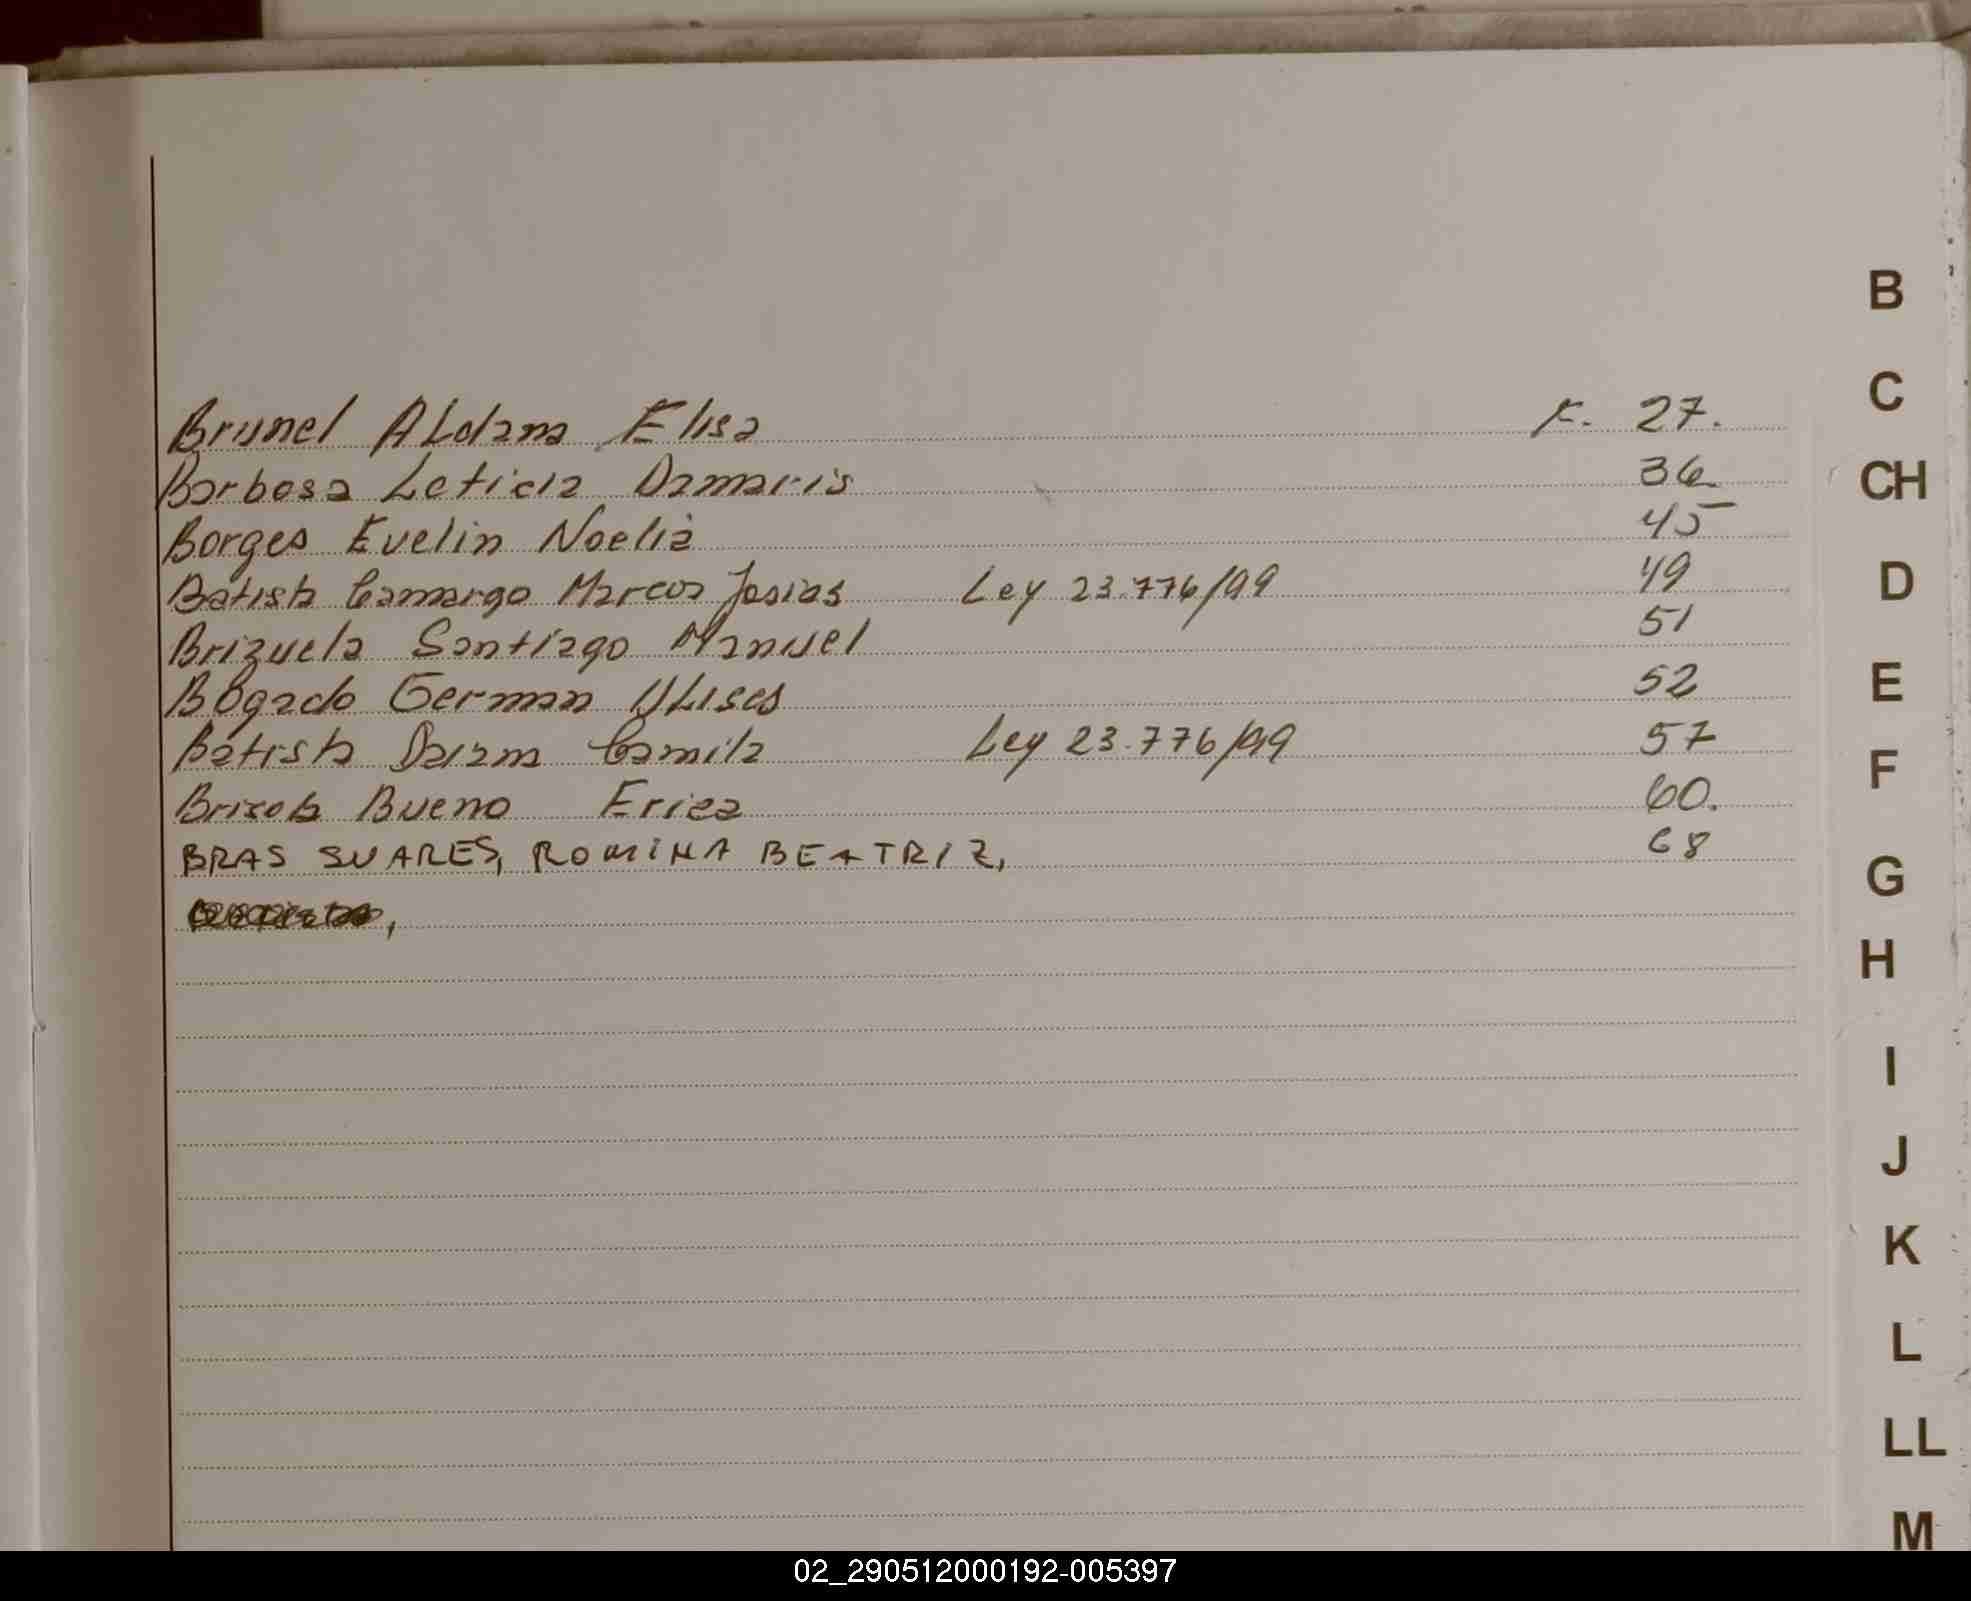 Brunel Aldana Elisa F. 27.
Barbosa Leticia Damaris 36
Borges Evelin Noelia 45
Batista Camargo Marcos Josias Ley 23.776/99 49
Brizuela Santiago Manuel 51
Bogado German Ulises 52
Batista Daiana Camila Ley 23.776/99 57
Bueno Erica 60.
BRAS SUARES, ROMINA BEATRIZ, 68
B
C
CH
D
E
F
G
H
I
J
K
L
LL
M
02_290512000192-005397